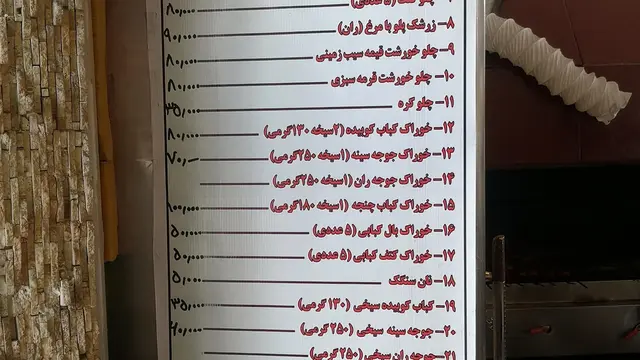 (۵ عددی) ۸۰,۰۰۰
۸- زرشک پلو با مرغ (ران) ۹۰,۰۰۰
۹- چلو خورشت قیمه سیب زمینی ۸۰,۰۰۰
۱۰- چلو خورشت قرمه سبزی ۸۰,۰۰۰
۱۱- چلو کره ۳۵,۰۰۰
۱۲- خوراک کباب کوبیده (۲سیخه ۱۳۰گرمی) ۸۰,۰۰۰
۱۳- خوراک جوجه سینه (۱سیخه ۲۵۰گرمی) ۷۰,۰۰۰
۱۴- خوراک جوجه ران (۱سیخه ۲۵۰گرمی)
۱۵- خوراک کباب چنجه (۱سیخه ۱۸۰گرمی) ۱۰۰,۰۰۰
۱۶- خوراک بال کبابی (۵ عددی) ۵۰,۰۰۰
۱۷- خوراک کتف کبابی (۵ عددی) ۵۰,۰۰۰
۱۸- نان سنگک ۵,۰۰۰
۱۹- کباب کوبیده سیخی (۱۳۰ گرمی) ۳۵,۰۰۰
۲۰- جوجه سینه سیخی (۲۵۰ گرمی) ۶۰,۰۰۰
۲۱- جوجه ران سیخی (۲۵۰ گرمی)